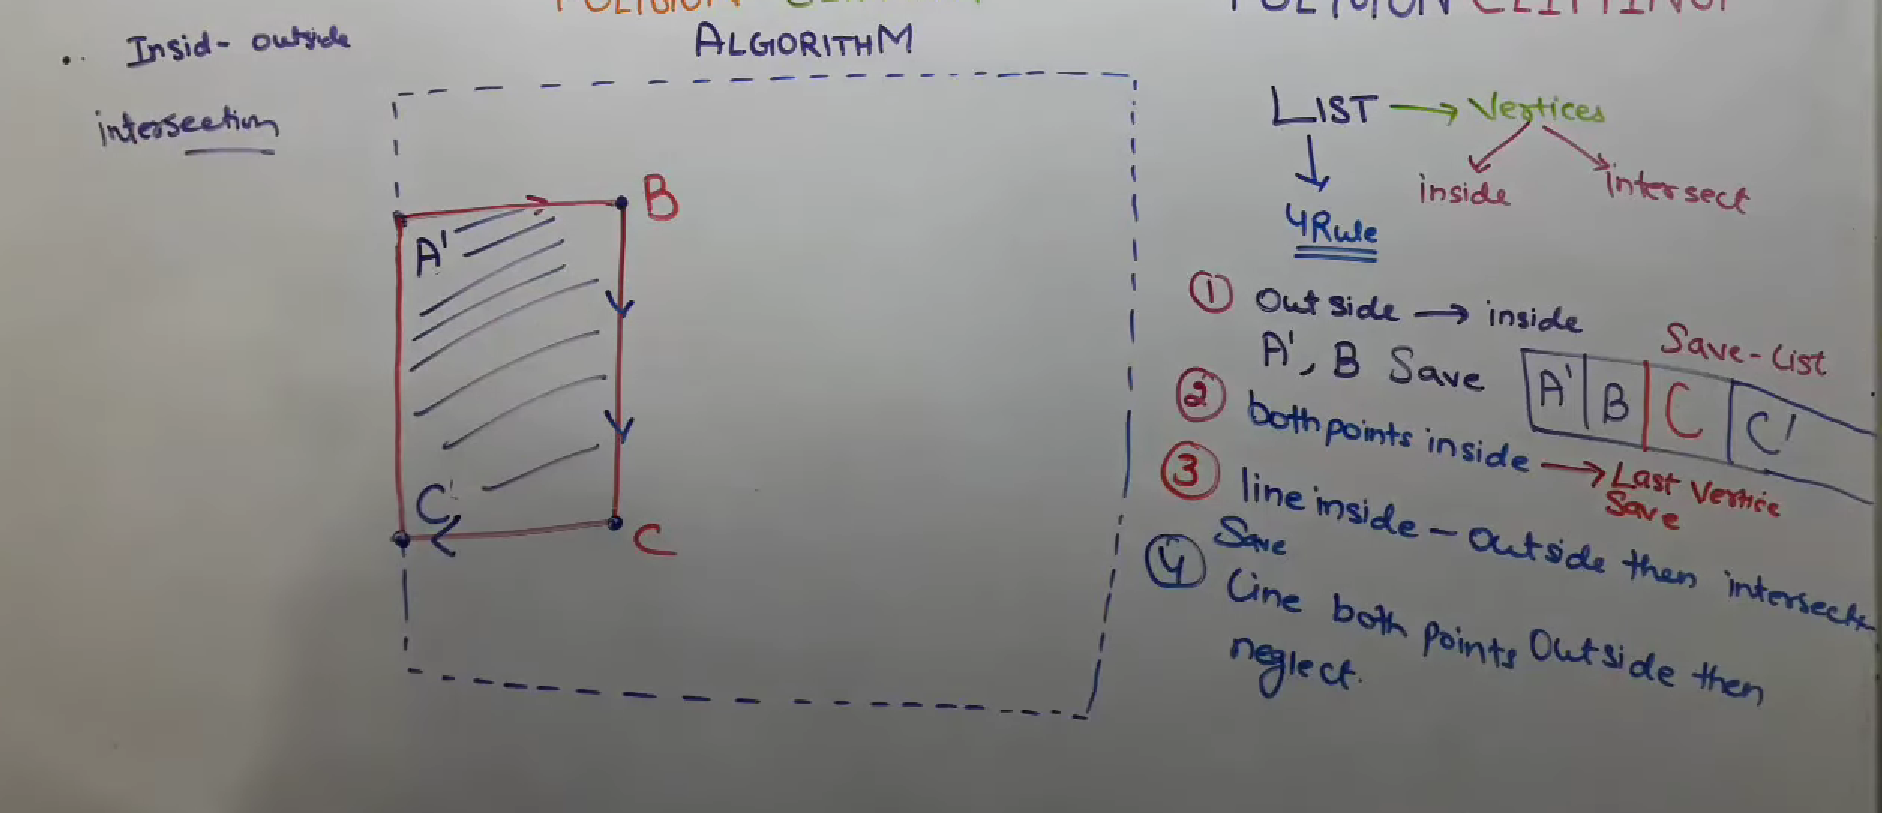 ALGORITHM
Insid- outside
intersection
A'
B
C'
C
LIST → Vertices
inside
intersect
4Rule
① Outside → inside
A', B Save
Save-List
A' B C C'
② both points inside → Last Vertice
Save
③ line inside - outside then intersect
Save
④ Line both points Outside then
neglect.